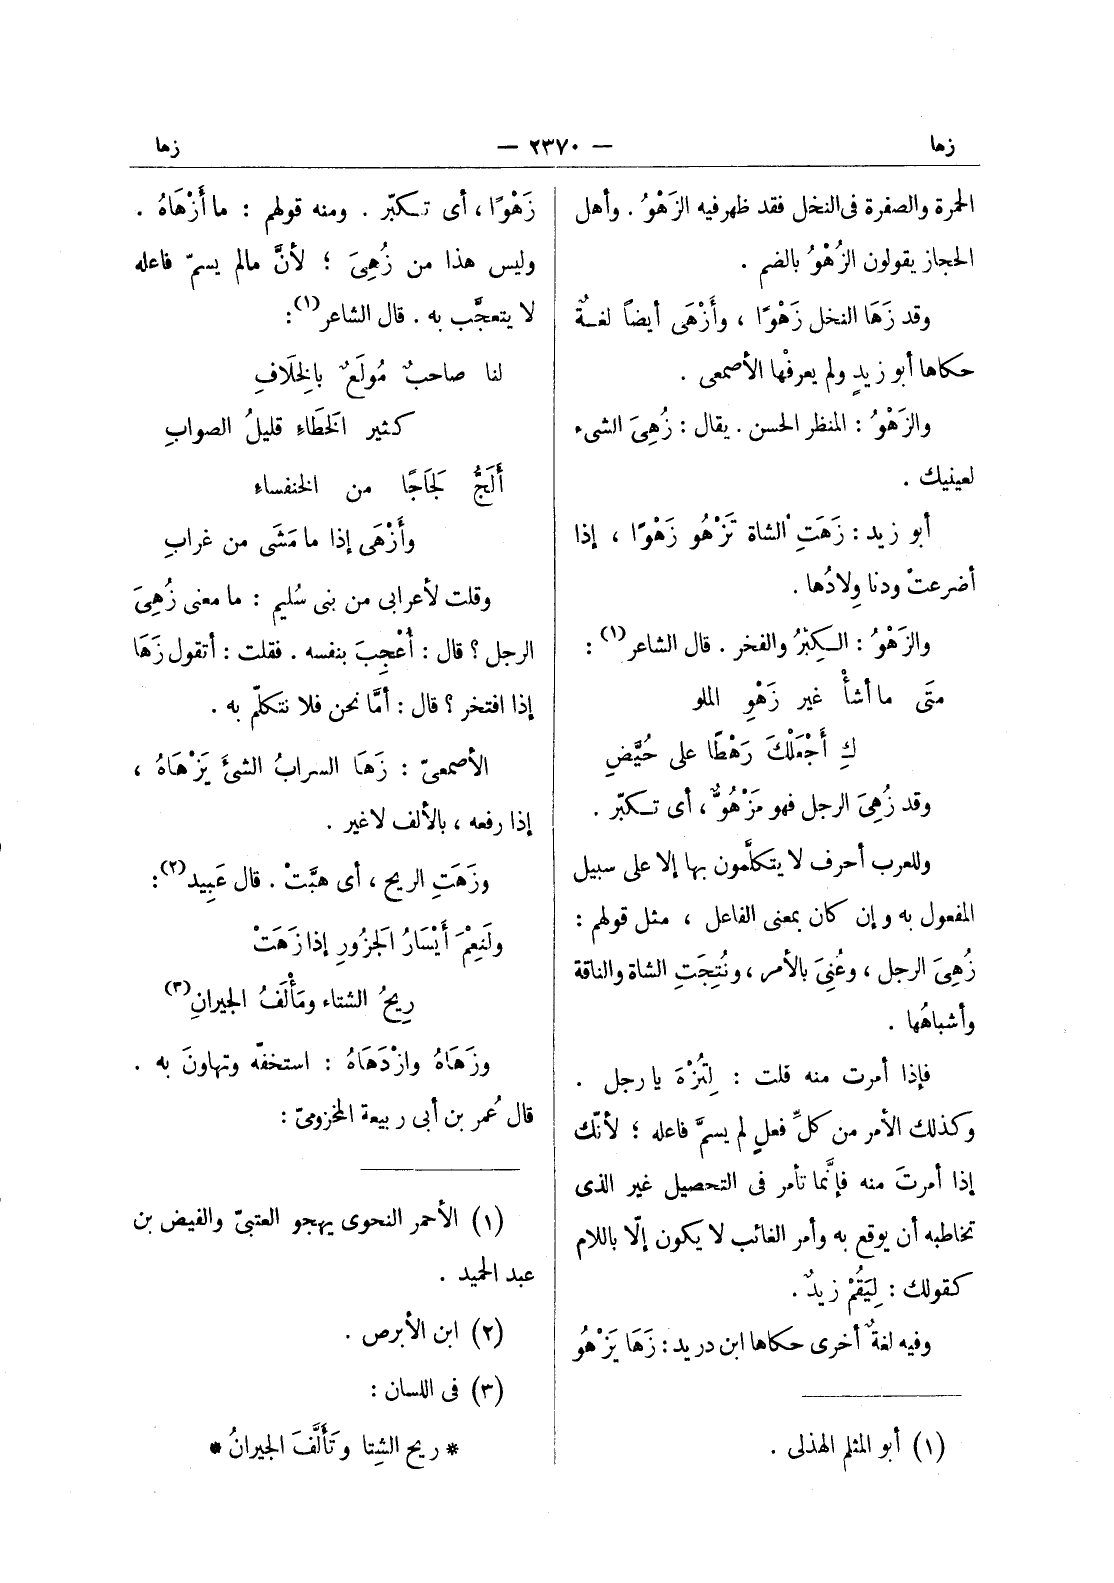 زها
— ٢٣٧٠ —
زها
الحمرة والصفرة فى النخل فقد ظهر فيه الزَهْوُ . وأهل
الحجاز يقولون الزُهْوُ بالضم .
وقد زَهَا النخل زَهْوًا ، وأَزْهَى أيضاً لغـةٌ
حكاها أبو زيدٍ ولم يعرفْها الأصمعى .
والزَهْوُ : المنظر الحسن . يقال : زُهِىَ الشىء
لعينيك .
أبو زيد : زَهَتِ الشاة تَزْهُو زَهْوًا ، إذا
أضرعتْ ودنا وِلادُها .
والزَهْوُ : الـكِبْرُ والفخر . قال الشاعر(١) :
متَى ما أشأْ غير زَهْوِ الملو
كِ أَجْعَلْكَ رَهْطًا على حُيَّضِ
وقد زُهِىَ الرجل فهو مَزْهُوٌّ ، أى تـكبّر .
وللعرب أحرف لا يتكلَّمون بها إلا على سبيل
المفعول به وإن كان بمعنى الفاعل ، مثل قولهم :
زُهِىَ الرجل ، وعُنِىَ بالأمر ، ونُتِجَتِ الشاة والناقة
وأشباهُها .
فإذا أمرت منه قلت : لِتُزْهَ يا رجل .
وكذلك الأمر من كلِّ فعلٍ لم يسمَّ فاعله ؛ لأنّك
إذا أمرتَ منه فإنَّما تأمر فى التحصيل غير الذى
تخاطبه أن يوقع به وأمر الغائب لا يكون إلّا باللام
كقولك : لِيَقُمْ زيدٌ .
وفيه لغةٌ أخرى حكاها ابن دريد : زَهَا يَزْهُو
(١) أبو المثلم الهذلى .
زَهْوًا ، أى تـكبّر . ومنه قولهم : ما أَزْهَاهُ .
وليس هذا من زُهِىَ ؛ لأنَّ مالم يسمّ فاعله
لا يتعجَّب به . قال الشاعر(١) :
لنا صاحبٌ مُولَعٌ بالخِلَافِ
كثير الخَطَاءِ قليلُ الصوابِ
أَلَجُّ لَجَاجًا من الخنفساءِ
وأَزْهَى إذا ما مَشَى من غرابِ
وقلت لأعرابى من بنى سُليم : ما معنى زُهِىَ
الرجل ؟ قال : أُعْجِبَ بنفسه . فقلت : أتقول زَهَا
إذا افتخر ؟ قال : أمَّا نحن فلا نتكلّم به .
الأصمعىّ : زَهَا السرابُ الشئَ يَزْهَاهُ ،
إذا رفعه ، بالألف لاغير .
وزَهَتِ الريح ، أى هبَّتْ . قال عَبِيد(٢) :
ولَنِعْمَ أَيْسَارُ الجَزُورِ إذا زَهَتْ
رِيحُ الشتاء ومَأْلَفُ الجيرانِ(٣)
وزَهَاهُ وازْدَهَاهُ : استخفّه وتهاونَ به .
قال عُمر بن أبى ربيعة المخزومىّ :
(١) الأحمر النحوى يهجو العتبىّ والفيض بن
عبد الحميد .
(٢) ابن الأبرص .
(٣) فى اللسان :
* ريح الشِتا وتَأَلَّفَ الجيرانُ *